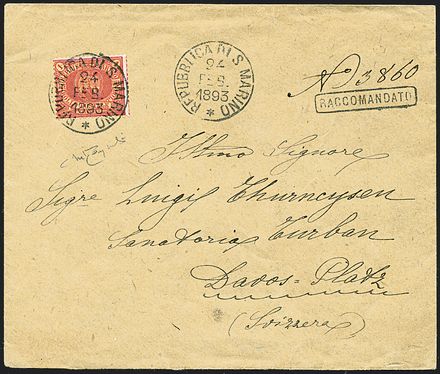 REPUBBLICA DI S. MARINO
24
FEB.
1893
REPUBBLICA DI S. MARINO
24
FEB.
1893
No 3860
RACCOMANDATO
Illmo Signore
Sigre Luigi Thurneysen
Sanatoria Turban
Davos-Platz
(Svizzera)